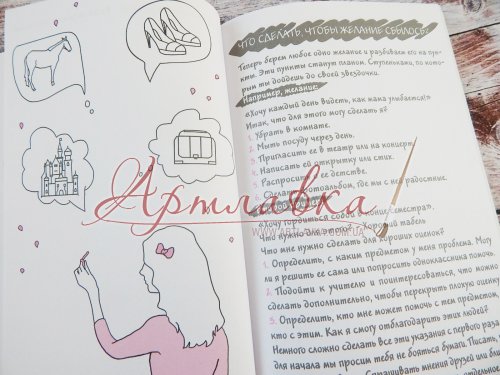 ЧТО СДЕЛАТЬ, ЧТОБЫ ЖЕЛАНИЕ СБЫЛОСЬ?
Теперь берем любое одно желание и разбиваем его на пун-
кты. Эти пункты станут планом. Ступеньками, по кото-
рым ты дойдешь до своей звездочки.
Например, желание:
«Хочу каждый день видеть, как мама улыбается!»
Итак, что для этого могу сделать я?
1. Убрать в комнате.
2. Мыть посуду через день.
3. Пригласить ее в театр или на концерт.
4. Написать ей открытку или стих.
5. Распросить о ее детстве.
6. Сделать фотоальбом, где мы с ней радостные.
«Хочу гордиться собой в конце семестра».
Что нужно для этого? Хороший табель
Что мне нужно сделать для хороших оценок?
1. Определить, с каким предметом у меня проблема. Могу
ли я решить ее сама или попросить одноклассника помочь.
2. Подойти к учителю и поинтересоваться, что можно
сделать дополнительно, чтобы перекрыть плохую оценку
3. Определить, кто мне может помочь с тем предметом,
кто с этим. Как я смогу отблагодарить этих людей?
Немного сложно сделать все эти указания с первого раза
для начала мы просим тебя не бояться бумаги. Писать,
Спрашивать мнения друзей или бли
Артлавка